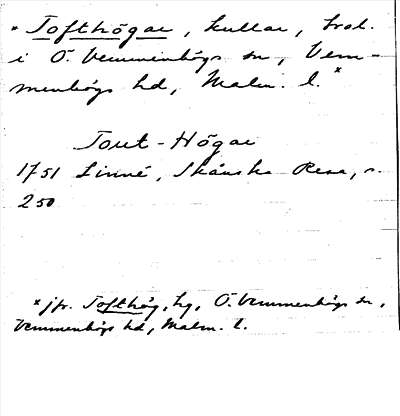 * Tofthögar, kullar, trol.
i Ö. Vemmenhögs sn, Vem-
menhögs hd, Malm. l.*
Tout-Högar
1751 Linné, Skånska Resa, s.
250
* jfr. Tofthög, hg, Ö. Vemmenhögs sn,
Vemmenhögs hd, Malm. l.